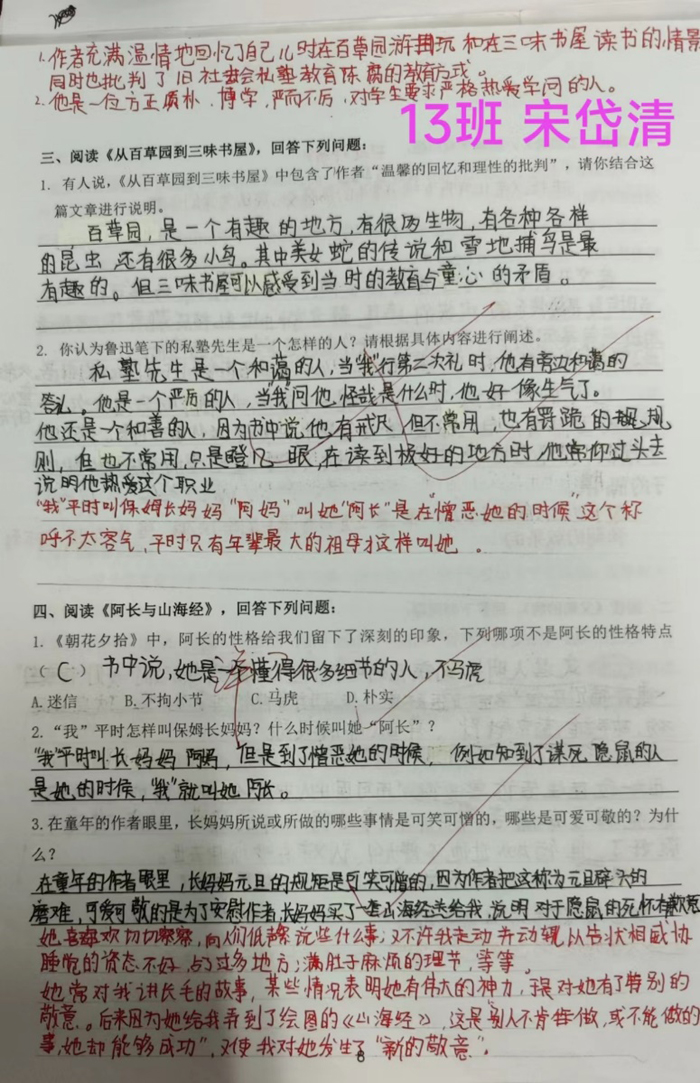 1.作者充满温情地回忆了自己儿时在百草园游玩和在三味书屋读书的情景
同时也批判了旧社会私塾教育陈腐的教育方式。
2.他是一位方正质朴、博学,严而不厉,对学生要求严格热爱学问的人。
13班 宋岱清
三、阅读《从百草园到三味书屋》,回答下列问题:
1. 有人说,《从百草园到三味书屋》中包含了作者“温馨的回忆和理性的批判”,请你结合这
篇文章进行说明。
百草园,是一个有趣的地方,有很多生物,有各种各样
的昆虫 还有很多小鸟。其中美女蛇的传说和雪地捕鸟是最
有趣的。但三味书屋可以感受到当时的教育与童心的矛盾。
2. 你认为鲁迅笔下的私塾先生是一个怎样的人?请根据具体内容进行阐述。
私塾先生是一个和蔼的人,当“我”行第二次礼时,他有旁边和蔼的
答礼。他是一个严厉的人,当“我”问他怪哉是什么时,他好像生气了。
他还是一个和善的人,因为书中说他有戒尺 但不常用,也有罚跪的规
则,但也不常用,只是瞪几眼,在读到极好的地方时,他常仰过头去
说明他热爱这个职业
“我”平时叫保姆长妈妈“阿妈”叫她“阿长”是在“憎恶她的时候”这个称
呼不太客气,平时只有年辈最大的祖母才这样叫她 。
四、阅读《阿长与山海经》,回答下列问题:
1.《朝花夕拾》中,阿长的性格给我们留下了深刻的印象,下列哪项不是阿长的性格特点
( C ) 书中说,她是一个懂得很多细节的人,不马虎
A.迷信 B.不拘小节 C.马虎 D.朴实
2.“我”平时怎样叫保姆长妈妈?什么时候叫她“阿长”?
“我”平时叫长妈妈 阿妈,但是到了憎恶她的时候,例如知到了谋死隐鼠的人
是她的时候,“我”就叫她阿长。
3.在童年的作者眼里,长妈妈所说或所做的哪些事情是可笑可憎的,哪些是可爱可敬的?为什
么?
在童年的作者眼里,长妈妈元旦的规矩是可笑可憎的,因为作者把这称为元旦辟头的
磨难,可爱可敬的是为了安慰作者,长妈妈买了一套山海经送给我,说明对于隐鼠的死怀有歉意
她喜欢切切察察,向人们低声絮说些什么事;又不许我走动 并动辄以告状相威胁
睡觉的姿态不好,占了过多地方;满肚子麻烦的理节,等等。
她常对我讲长毛的故事,某些情况表明她有伟大的神力,于是对她有了特别的
敬意。后来因为她给我弄到了绘图的《山海经》,这是别人不肯做,或不能做的
事,她却能够成功”,又使我对她发生了“新的敬意”。
6